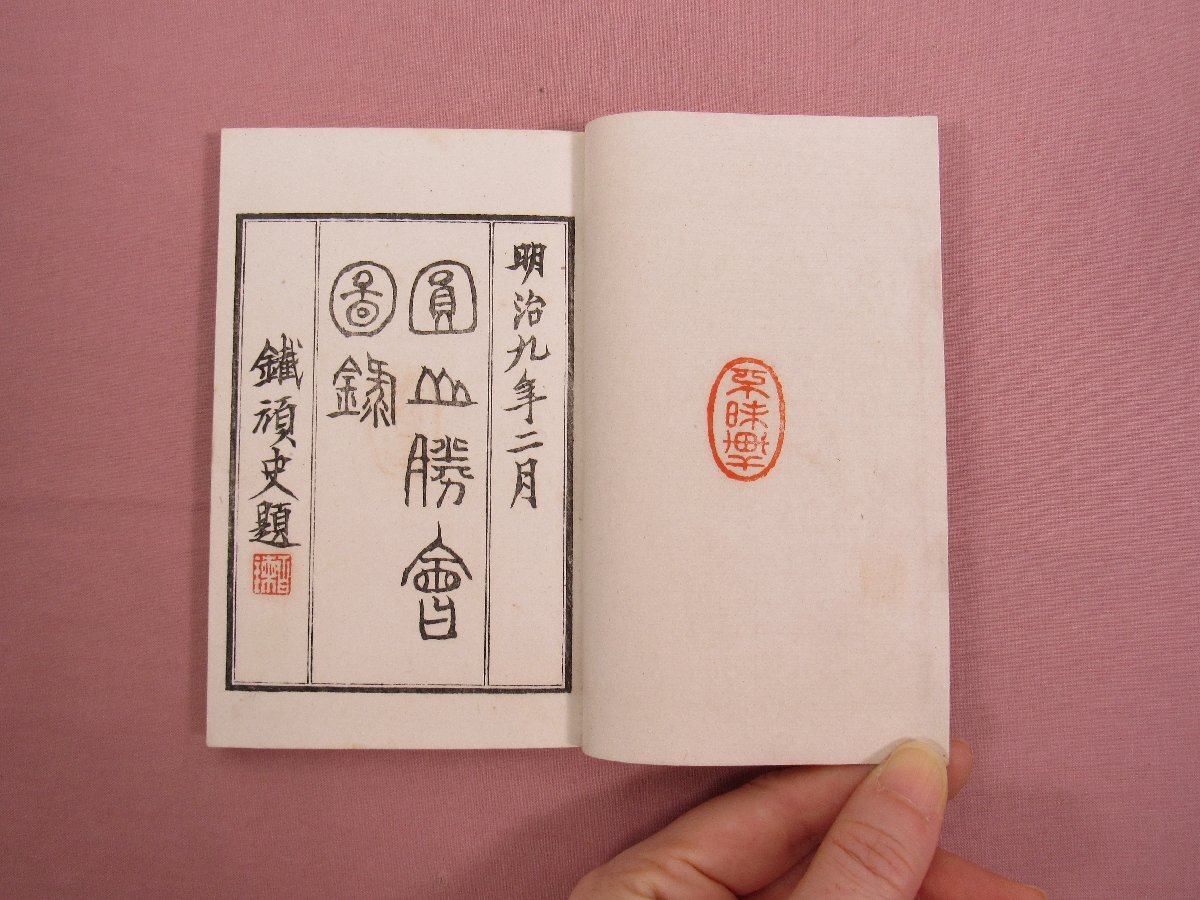 明治九年二月
圓山勝會
圖錄
鐵頑史題